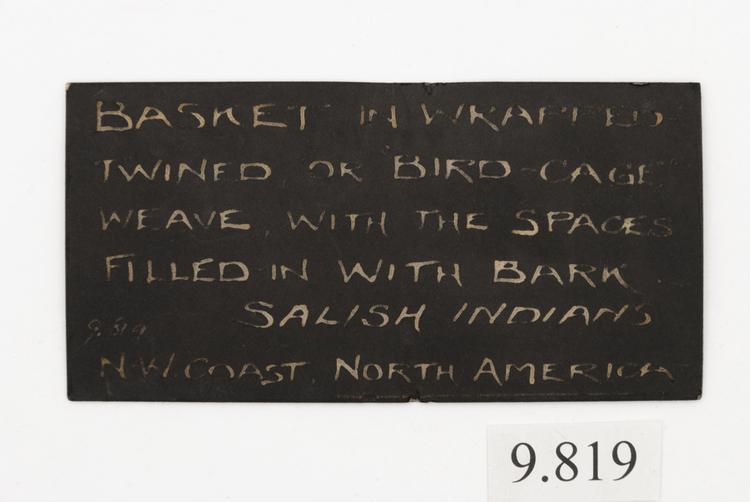 BASKET IN WRAPPED
TWINED OR BIRD-CAGE
WEAVE, WITH THE SPACES
FILLED IN WITH BARK.
SALISH INDIANS
9.819
N.W. COAST, NORTH AMERICA
9.819